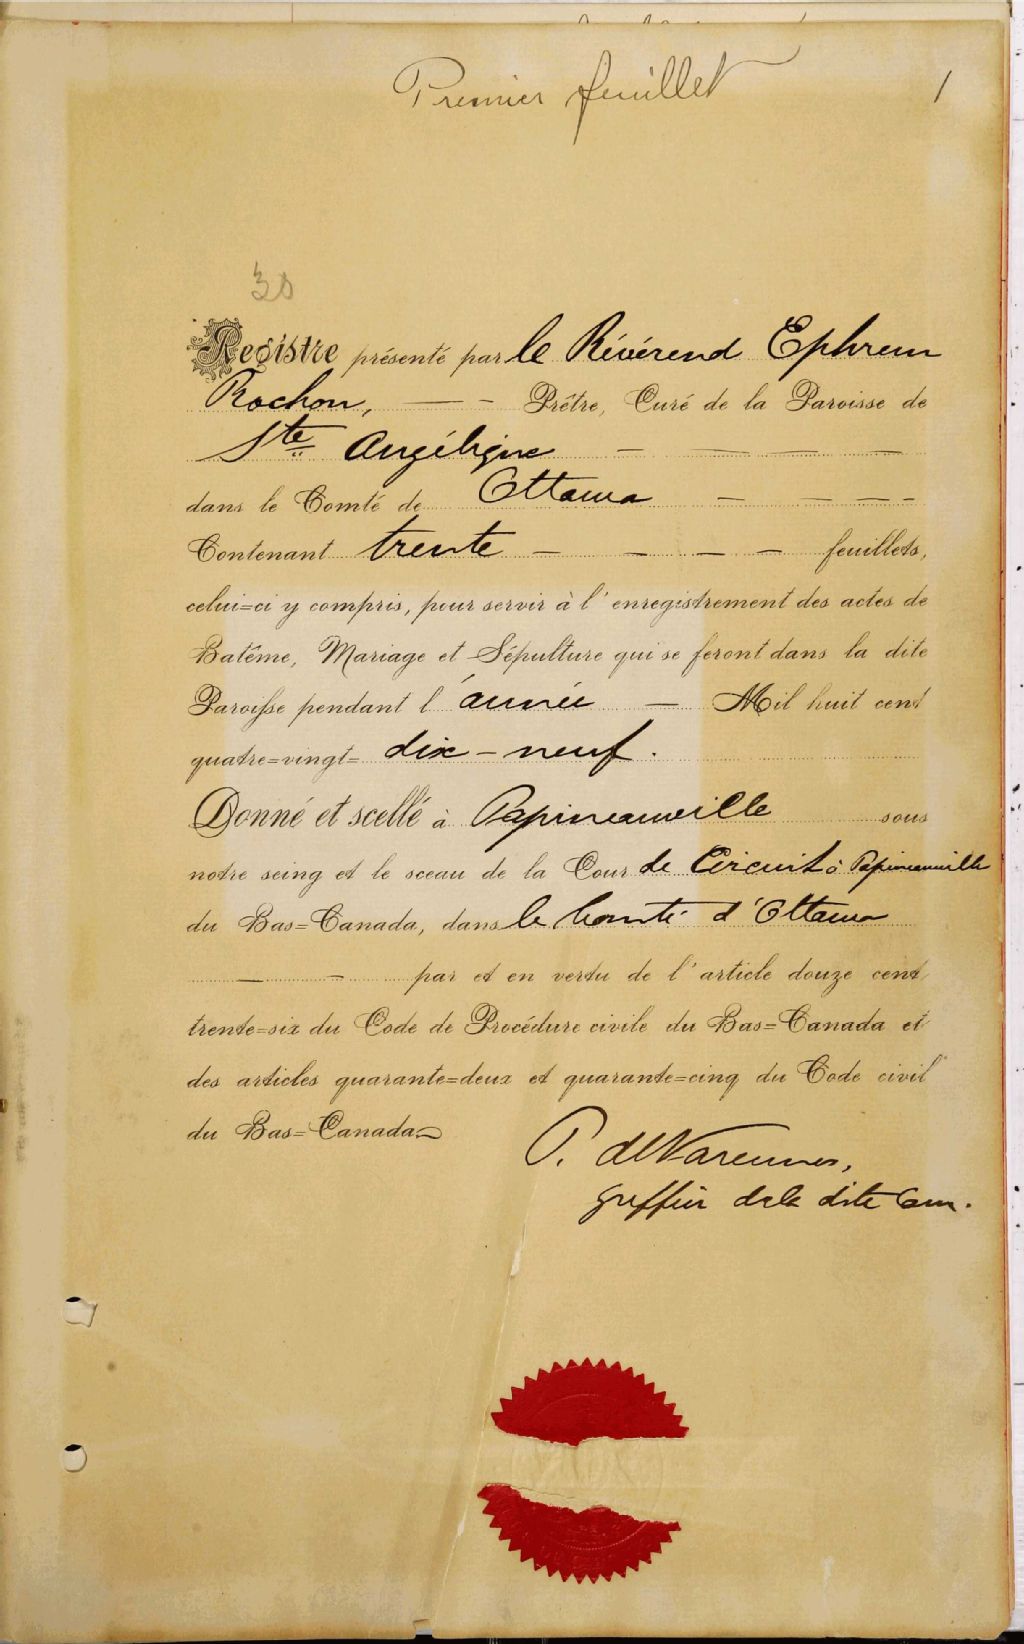 Premier feuillet
1
30
Registre présenté par le Révérend Ephrem
Rochon, — - Prêtre, Curé de la Paroisse de
Ste Angélique — — — —
dans le Comté de Ottawa — — — -
Contenant trente — — — — feuillets,
celui=ci y compris, pour servir à l'enregistrement des actes de
Batême, Mariage et Sépulture qui se feront dans la dite
Paroisse pendant l'année — Mil huit cent
quatre=vingt= dix-neuf.
Donné et scellé à Papineauville sous
notre seing et le sceau de la Cour de Circuit à Papineauville
du Bas=Canada, dans le Comté d'Ottawa
— - par et en vertu de l'article douze cent
trente=six du Code de Procédure civile du Bas=Canada et
des articles quarante=deux et quarante=cinq du Code civil
du Bas=Canada
P. deVarennes,
greffier de la dite Cour.